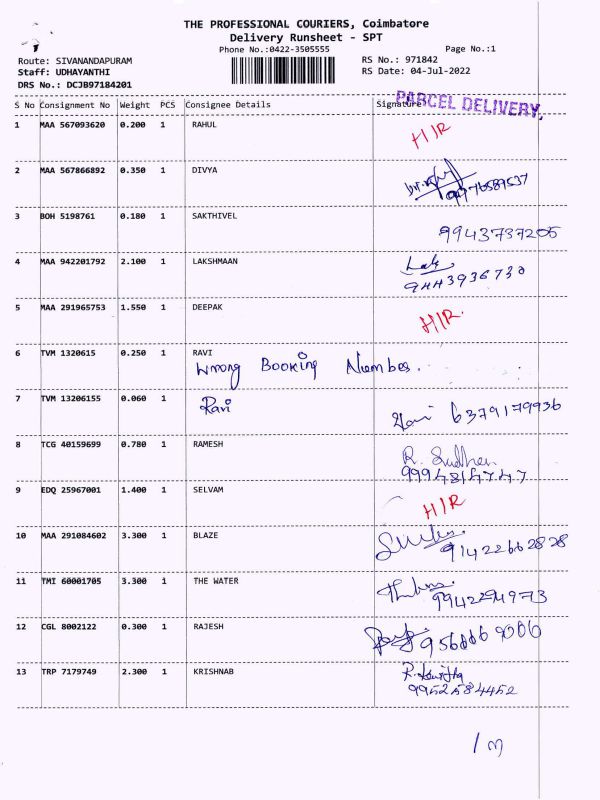 THE PROFESSIONAL COURIERS, Coimbatore
Delivery Runsheet - SPT
Phone No.:0422-3505555
Page No.:1
Route: SIVANANDAPURAM
RS No.: 971842
Staff: UDHAYANTHI
RS Date: 04-Jul-2022
DRS No.: DCJB97184201
PARCEL DELIVERY.
S No Consignment No Weight PCS Consignee Details Signature
1 MAA 567093620 0.200 1 RAHUL H/R
2 MAA 567866892 0.350 1 DIVYA
3 BOH 5198761 0.180 1 SAKTHIVEL 9943737205
4 MAA 942201792 2.100 1 LAKSHMAAN Lak
9443936730
5 MAA 291965753 1.550 1 DEEPAK H/R.
6 TVM 1320615 0.250 1 RAVI
Wrong Booking Number.
7 TVM 13206155 0.060 1 Ravi 6379179936
8 TCG 40159699 0.780 1 RAMESH R. Sudhen
9994814747
9 EDQ 25967001 1.400 1 SELVAM H/R
10 MAA 291084602 3.300 1 BLAZE 91422662828
11 TMI 60001705 3.300 1 THE WATER 9942294973
12 CGL 8002122 0.300 1 RAJESH
13 TRP 7179749 2.300 1 KRISHNAB
9952584452